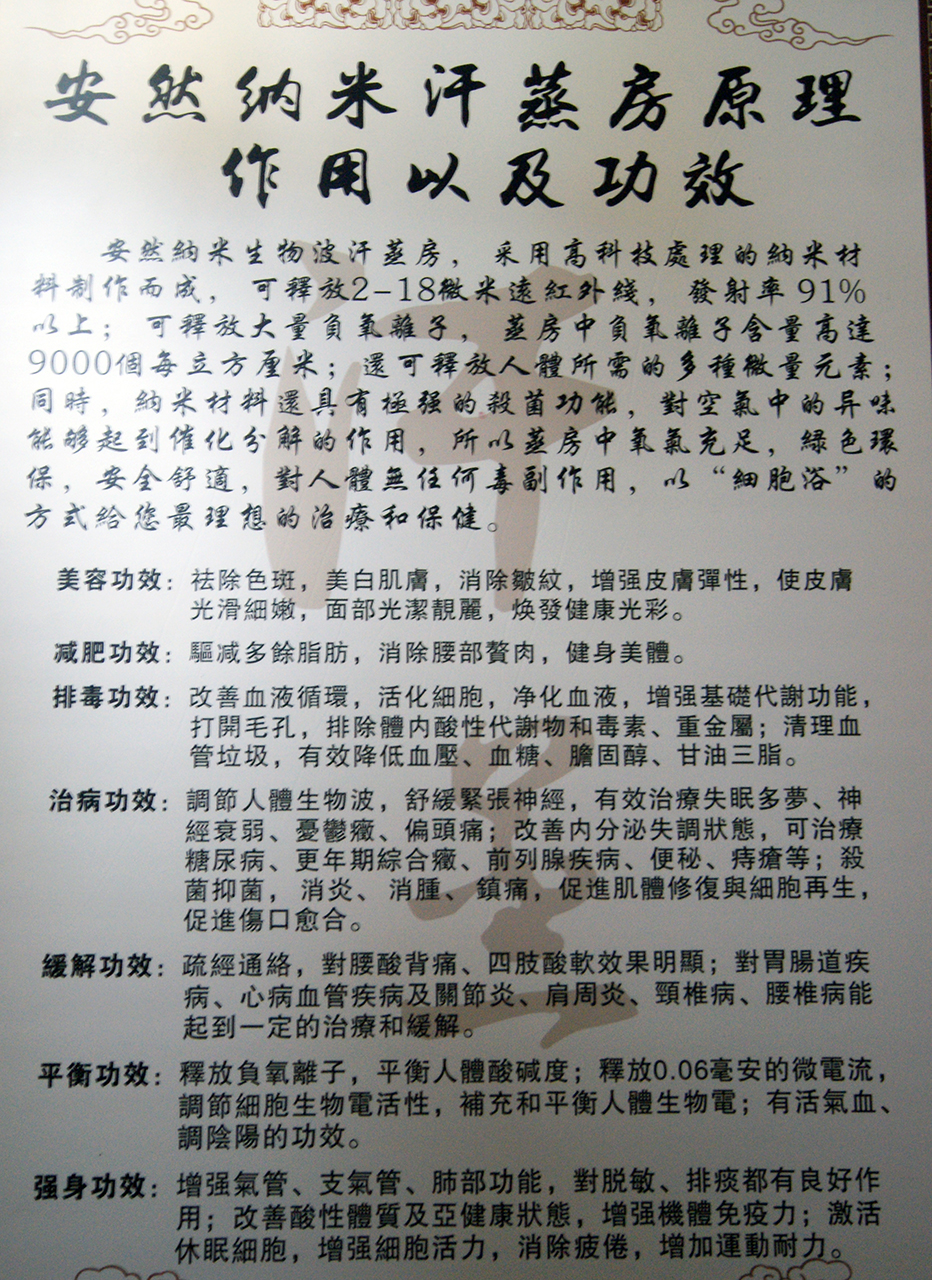 安然纳米汗蒸房原理
作用以及功效
安然納米生物波汗蒸房，采用高科技處理的納米材
料制作而成，可釋放2-18微米遠紅外綫，發射率 91%
以上；可釋放大量負氧離子，蒸房中負氧離子含量高達
9000個每立方厘米；還可釋放人體所需的多種微量元素；
同時，納米材料還具有極强的殺菌功能，對空氣中的异味
能够起到催化分解的作用，所以蒸房中氧氣充足，緑色環
保，安全舒適，對人體無任何毒副作用，以“細胞浴”的
方式給您最理想的治療和保健。
美容功效：祛除色斑，美白肌膚，消除皺紋，增强皮膚彈性，使皮膚
光滑細嫩，面部光潔靚麗，焕發健康光彩。
减肥功效：驅减多餘脂肪，消除腰部贅肉，健身美體。
排毒功效：改善血液循環，活化細胞，净化血液，增强基礎代謝功能，
打開毛孔，排除體内酸性代謝物和毒素、重金屬；清理血
管垃圾，有效降低血壓、血糖、膽固醇、甘油三脂。
治病功效：調節人體生物波，舒緩緊張神經，有效治療失眠多夢、神
經衰弱、憂鬱癥、偏頭痛；改善内分泌失調狀態，可治療
糖尿病、更年期綜合癥、前列腺疾病、便秘、痔瘡等；殺
菌抑菌，消炎、消腫、鎮痛，促進肌體修復與細胞再生，
促進傷口愈合。
緩解功效：疏經通絡，對腰酸背痛、四肢酸軟效果明顯；對胃腸道疾
病、心病血管疾病及關節炎、肩周炎、頸椎病、腰椎病能
起到一定的治療和緩解。
平衡功效：釋放負氧離子，平衡人體酸碱度；釋放0.06毫安的微電流，
調節細胞生物電活性，補充和平衡人體生物電；有活氣血、
調陰陽的功效。
强身功效：增强氣管、支氣管、肺部功能，對脱敏、排痰都有良好作
用；改善酸性體質及亞健康狀態，增强機體免疫力；激活
休眠細胞，增强細胞活力，消除疲倦，增加運動耐力。